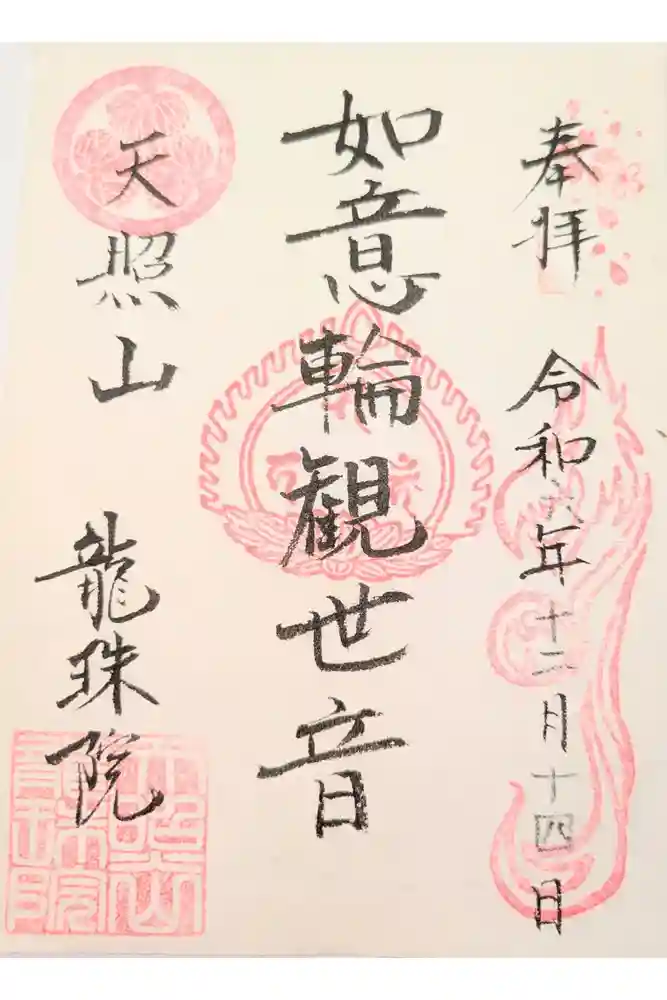 奉拝 令和六年十二月十四日
如意輪観世音
天照山 龍珠院